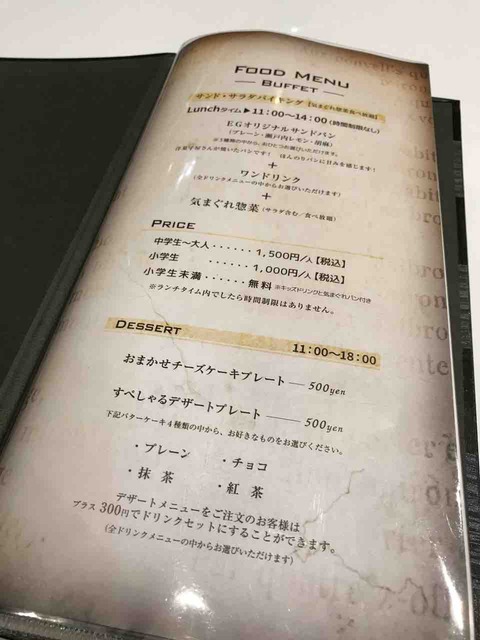 FOOD MENU
BUFFET
サンド・サラダバイキング【気まぐれ惣菜食べ放題】
Lunchタイム▶11:00〜14:00(時間制限なし)
E.Gオリジナルサンドパン
(プレーン・瀬戸内レモン・胡麻)
※3種類の中から、おひとつお選びいただけます。
洋菓子屋さんが焼いたパンです! ほんのりパンに甘みを感じます!
+
ワンドリンク
(全ドリンクメニューの中からお選びいただけます)
+
気まぐれ惣菜(サラダ含む/食べ放題)
PRICE
中学生〜大人・・・・・・1,500円/人【税込】
小学生 ・・・・・・1,000円/人【税込】
小学生未満・・・・・・無料 ※キッズドリンクと気まぐれパン付き
※ランチタイム内でしたら時間制限はありません。
DESSERT 11:00〜18:00
おまかせチーズケーキプレート — 500yen
すぺしゃるデザートプレート — 500yen
下記バターケーキ4種類の中から、お好きなものをお選びください。
・プレーン ・チョコ
・抹茶 ・紅茶
デザートメニューをご注文のお客様は
プラス300円でドリンクセットにすることができます。
(全ドリンクメニューの中からお選びいただけます)